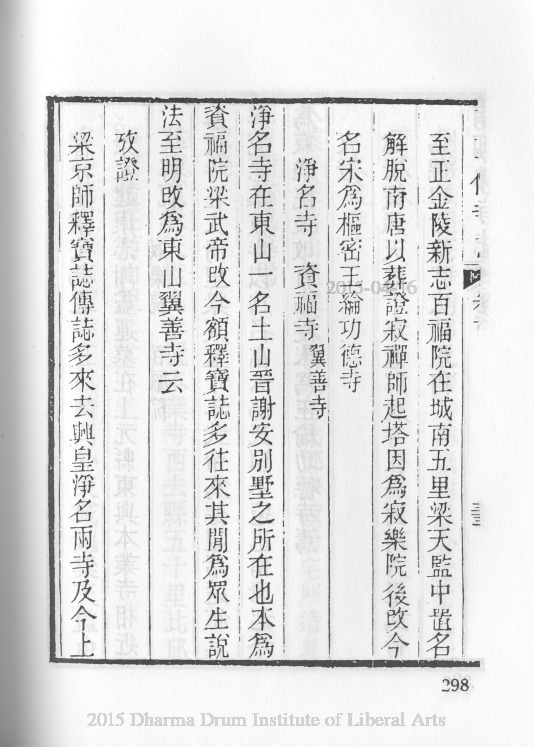 至正金陵新志百福院在城南五里梁天監中置名
解脫南唐以葬證寂禪師起塔因爲寂樂院後改今
名宋爲樞密王綸功德寺
淨名寺 資福寺 翼善寺
淨名寺在東山一名土山晉謝安別墅之所在也本爲
資福院梁武帝改今額釋寶誌多往來其閒爲眾生說
法至明改爲東山翼善寺云
攷證
梁京師釋寶誌傳誌多來去興皇淨名兩寺及今上
298
2015-04-16
2015 Dharma Drum Institute of Liberal Arts